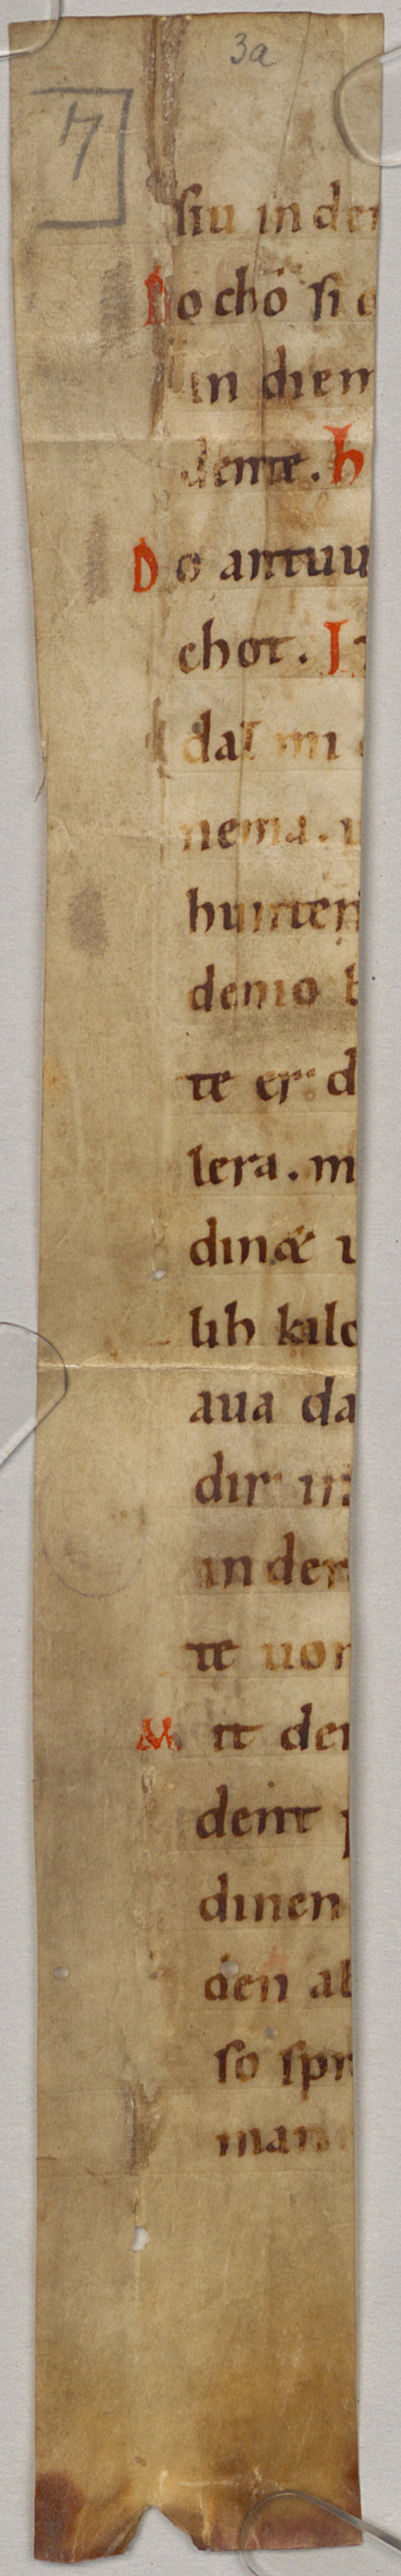 3a
7
siu in de
Do chō si
in dien
dente. h
Do antuu
chot. J
daſ mi
nema.
hunter
demo b
te er d
lera. m
dinæ
lib kalo
aua da
dir
in der
te uon
Mit der
deint
dinen
den ab
so spr
man